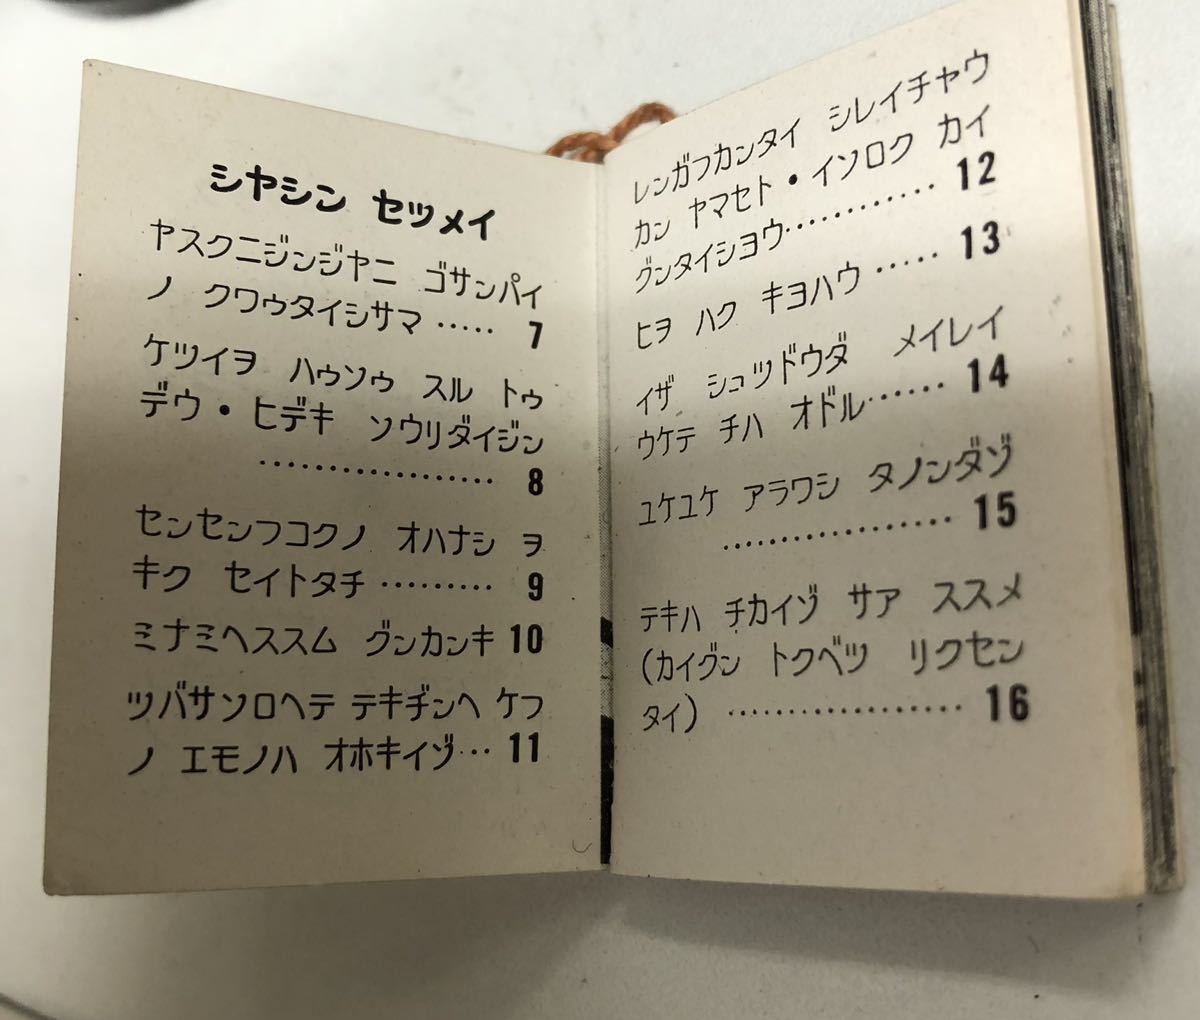 シヤシン セツメイ
ヤスクニジンジヤニ ゴサンパイ
ノ クワウタイシサマ ····· 7
ケツイヲ ハウソウ スル トウ
デウ・ヒデキ ソウリダイジン
·················· 8
センセンフコクノ オハナシ ヲ
キク セイトタチ ········· 9
ミナミヘススム グンカンキ 10
ツバサソロヘテ テキヂンヘ ケフ
ノ エモノハ オホキイゾ··· 11
レンガフカンタイ シレイチャウ
カン ヤマセト・イソロク カイ
グンタイシヨウ············ 12
ヒヲ ハク キヨハウ ····· 13
イザ シュツドウダ メイレイ
ウケテ チハ オドル······ 14
ユケユケ アラワシ タノンダゾ
·················· 15
テキハ チカイゾ サア ススメ
(カイグン トクベツ リクセン
タイ) ·················· 16